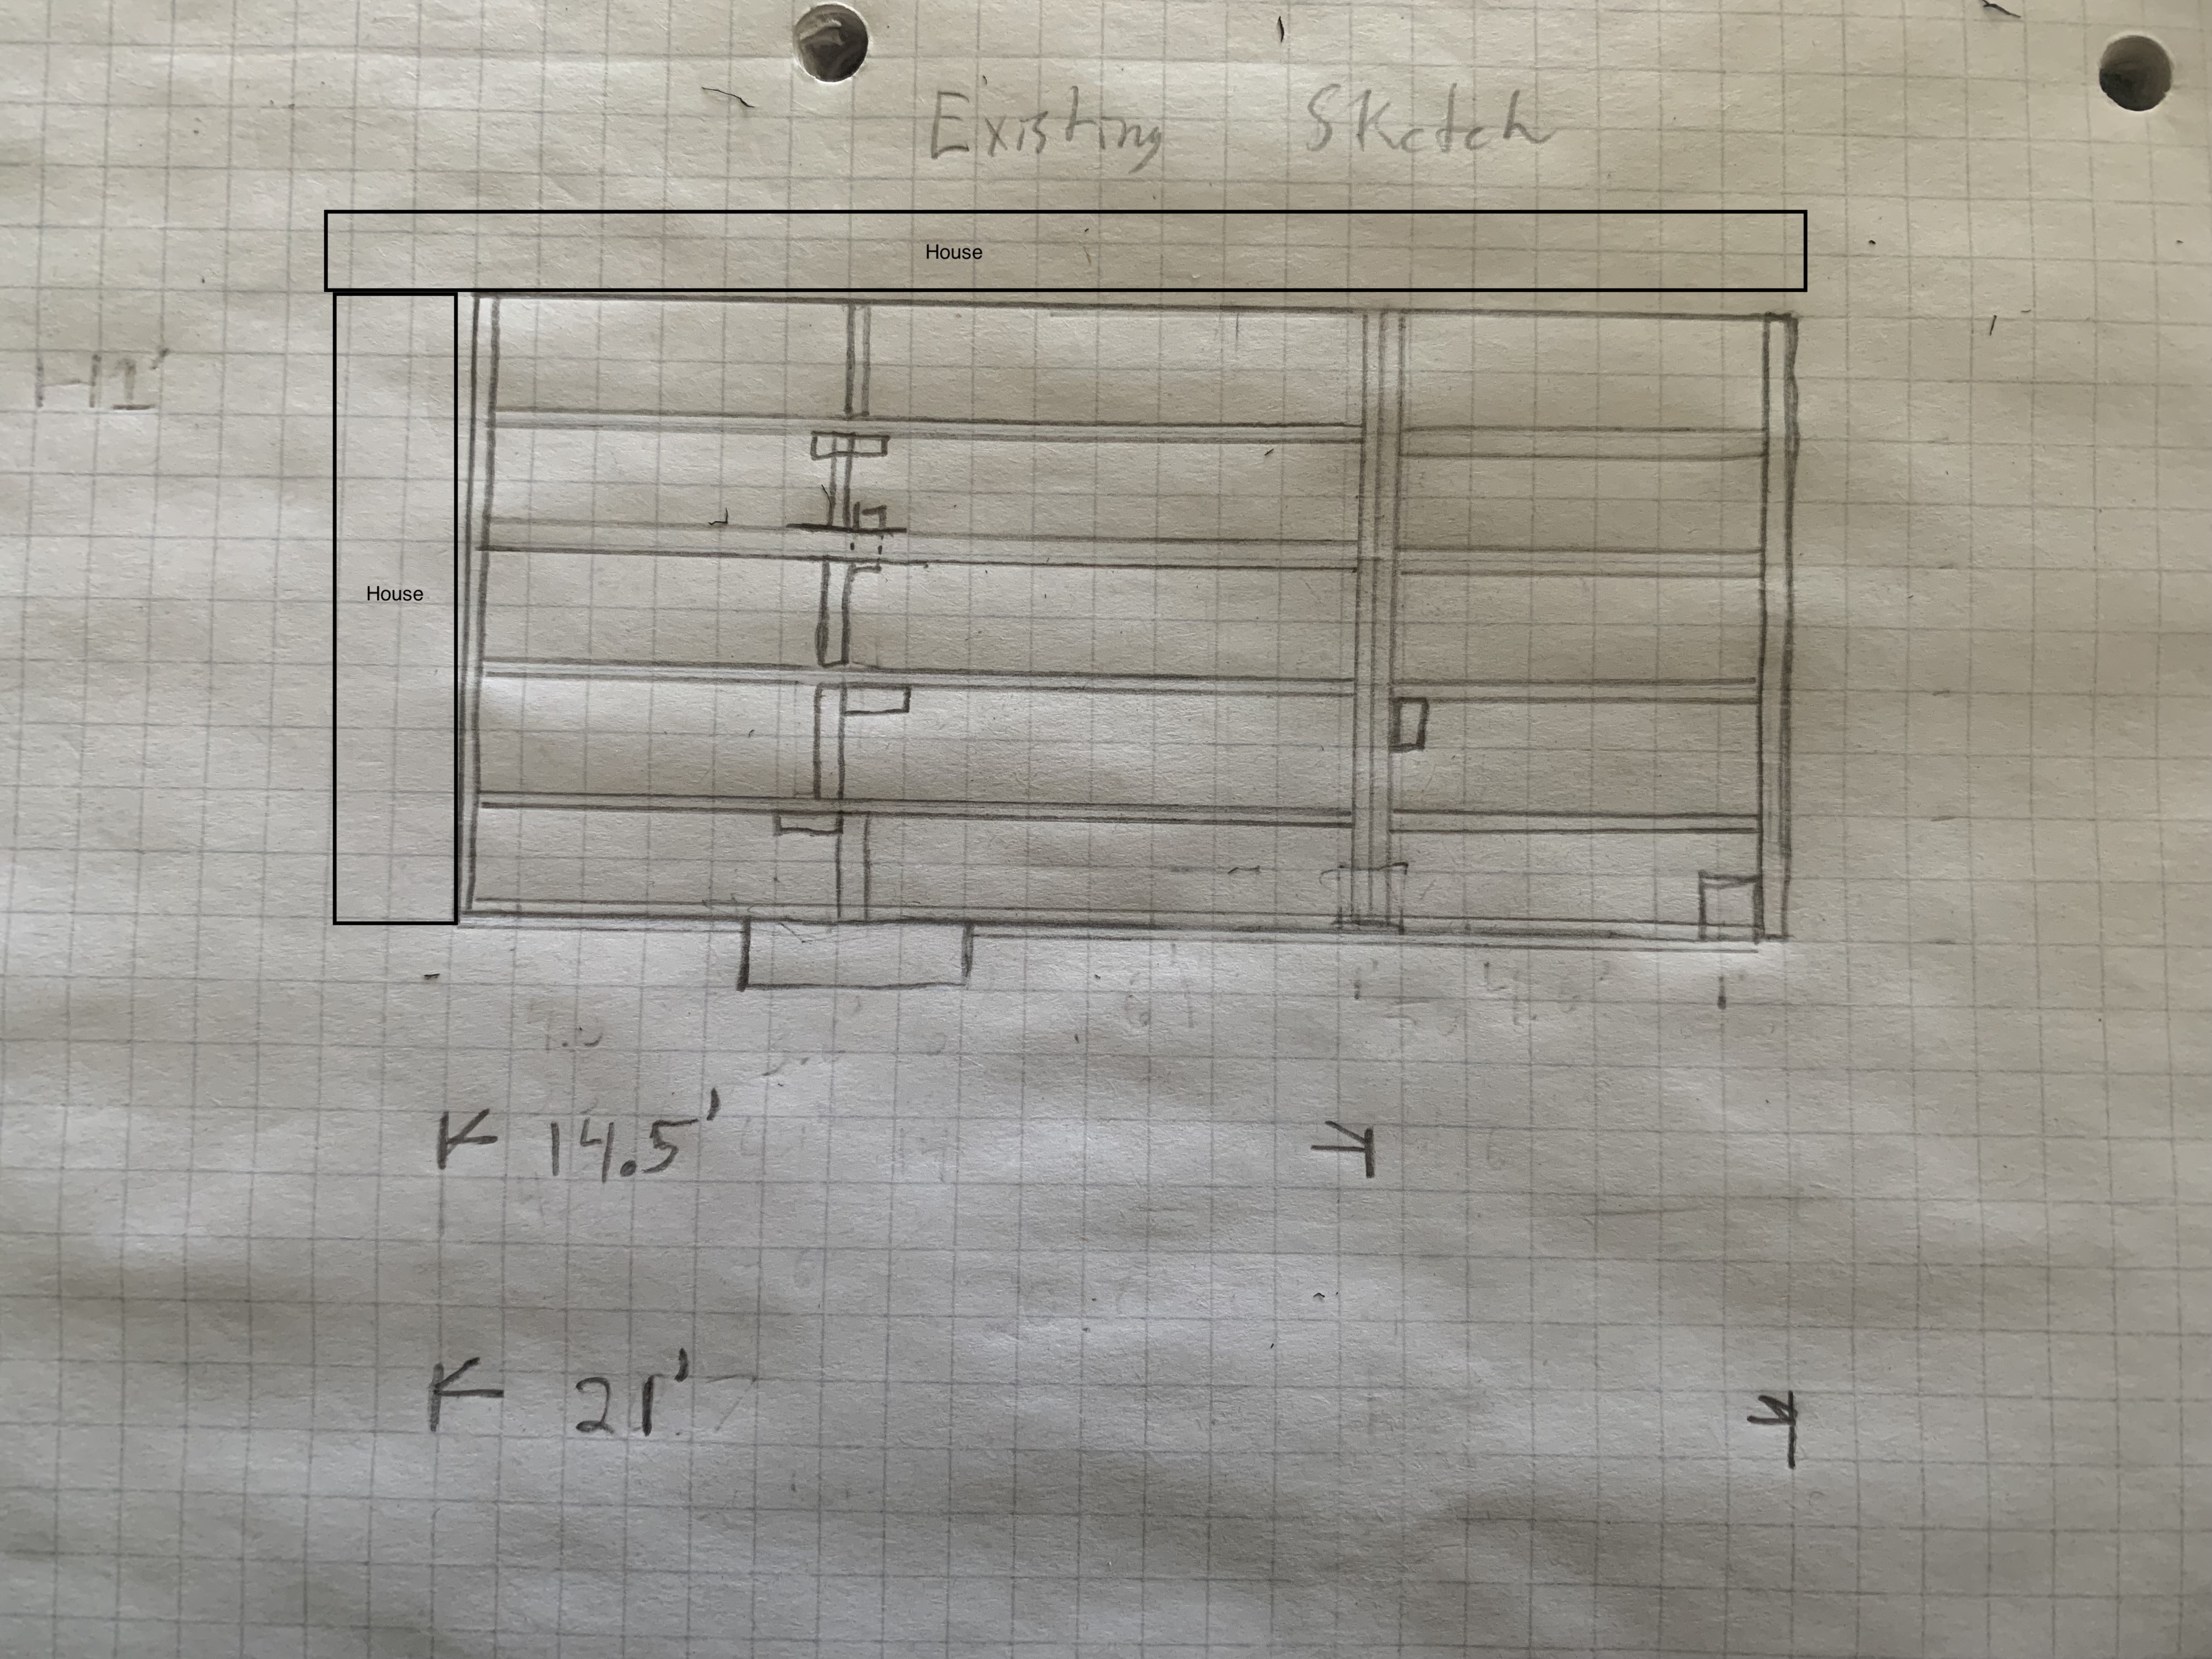 Existing Sketch
House
House
14.5'
21'